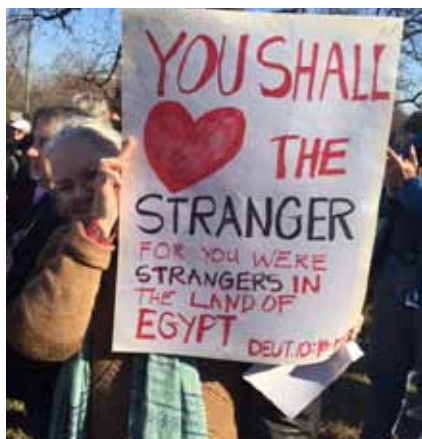 YOU SHALL
THE
STRANGER
FOR YOU WERE
STRANGERS IN
THE LAND OF
EGYPT
DEUT.